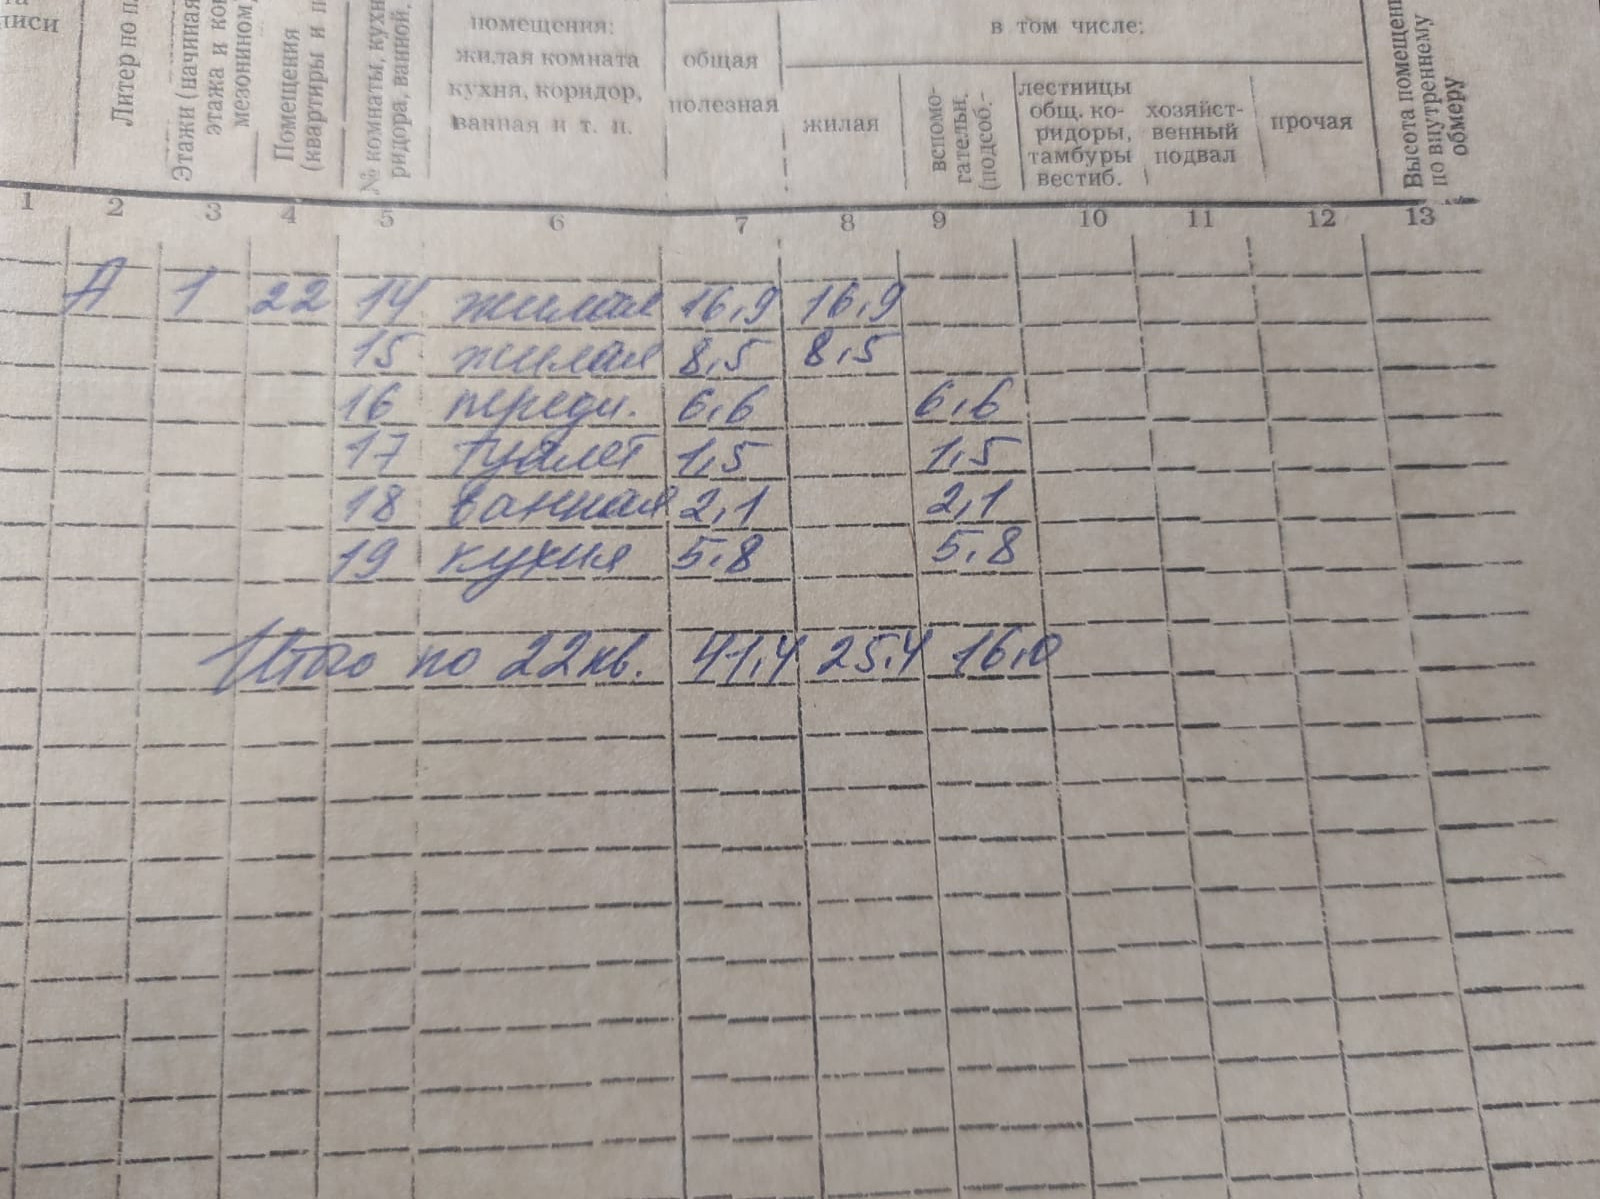 писи
Литер по
Этажи (начиная
этажа и
мезонином,
Помещения
(квартиры и
№ комнаты, кухн
ридора, ванной,
помещения:
жилая комната
кухня, коридор,
ванная и т. п.
общая
полезная
в том числе:
жилая
вспомо-
гательн.
(подсоб.-
лестницы
общ. ко-
ридоры,
тамбуры
вестиб.
хозяйст-
венный
подвал
прочая
Высота помещени
по внутреннему
обмеру
1 2 3 4 5 6 7 8 9 10 11 12 13
А 1 22 14 жилая 16,9 16,9
15 жилая 8,5 8,5
16 передн. 6,6 6,6
17 туалет 1,5 1,5
18 ванная 2,1 2,1
19 кухня 5,8 5,8
Итого по 22 кв. 41,4 25,4 16,0